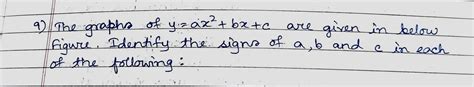 9) The graphs of y = ax² + bx + c are given in below
figure. Identify the signs of a, b and c in each
of the following :